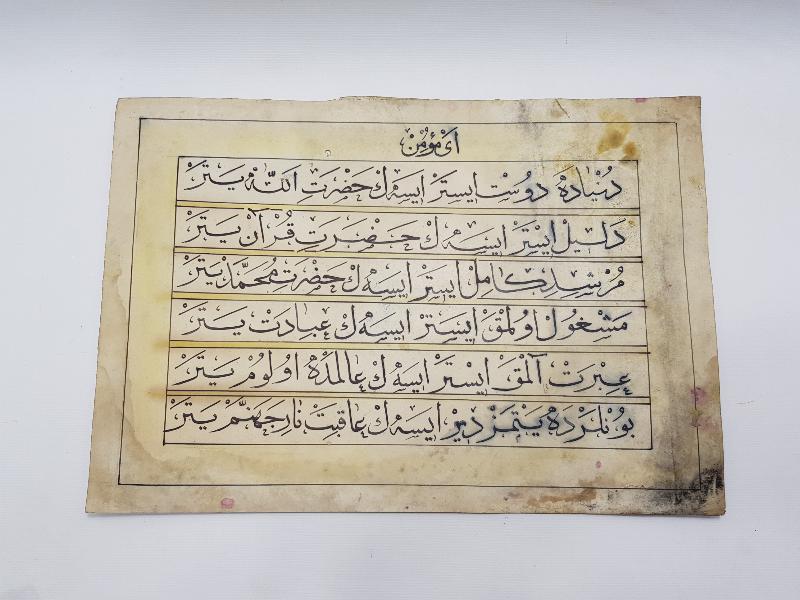 اَىْ مُؤْمِنْ
دُنْيَادَهْ دُوسْتْ اِيسْتَرْ اِيسَهْ ڭْ حَضْرَتِ اَللّٰهْ يَتَرْ
دَلِيلْ اِيسْتَرْ اِيسَهْ ڭْ حَضْرَتِ قُرْآنْ يَتَرْ
مُرْشِدِ كَامِلْ اِيسْتَرْ اِيسَهْ ڭْ حَضْرَتِ مُحَمَّدْ يَتَرْ
مَشْغُولْ اُولْمَقْ اِيسْتَرْ اِيسَهْ ڭْ عِبَادَتْ يَتَرْ
عِبْرَتْ آلْمَقْ اِيسْتَرْ اِيسَهْ ڭْ عَالَمْدَهْ اُولُومْ يَتَرْ
بُونْلَرْدَهْ يَتْمَزْ دِيرْ اِيسَهْ ڭْ عَاقِبَتْ نَارِ جَهَنَّمْ يَتَرْ